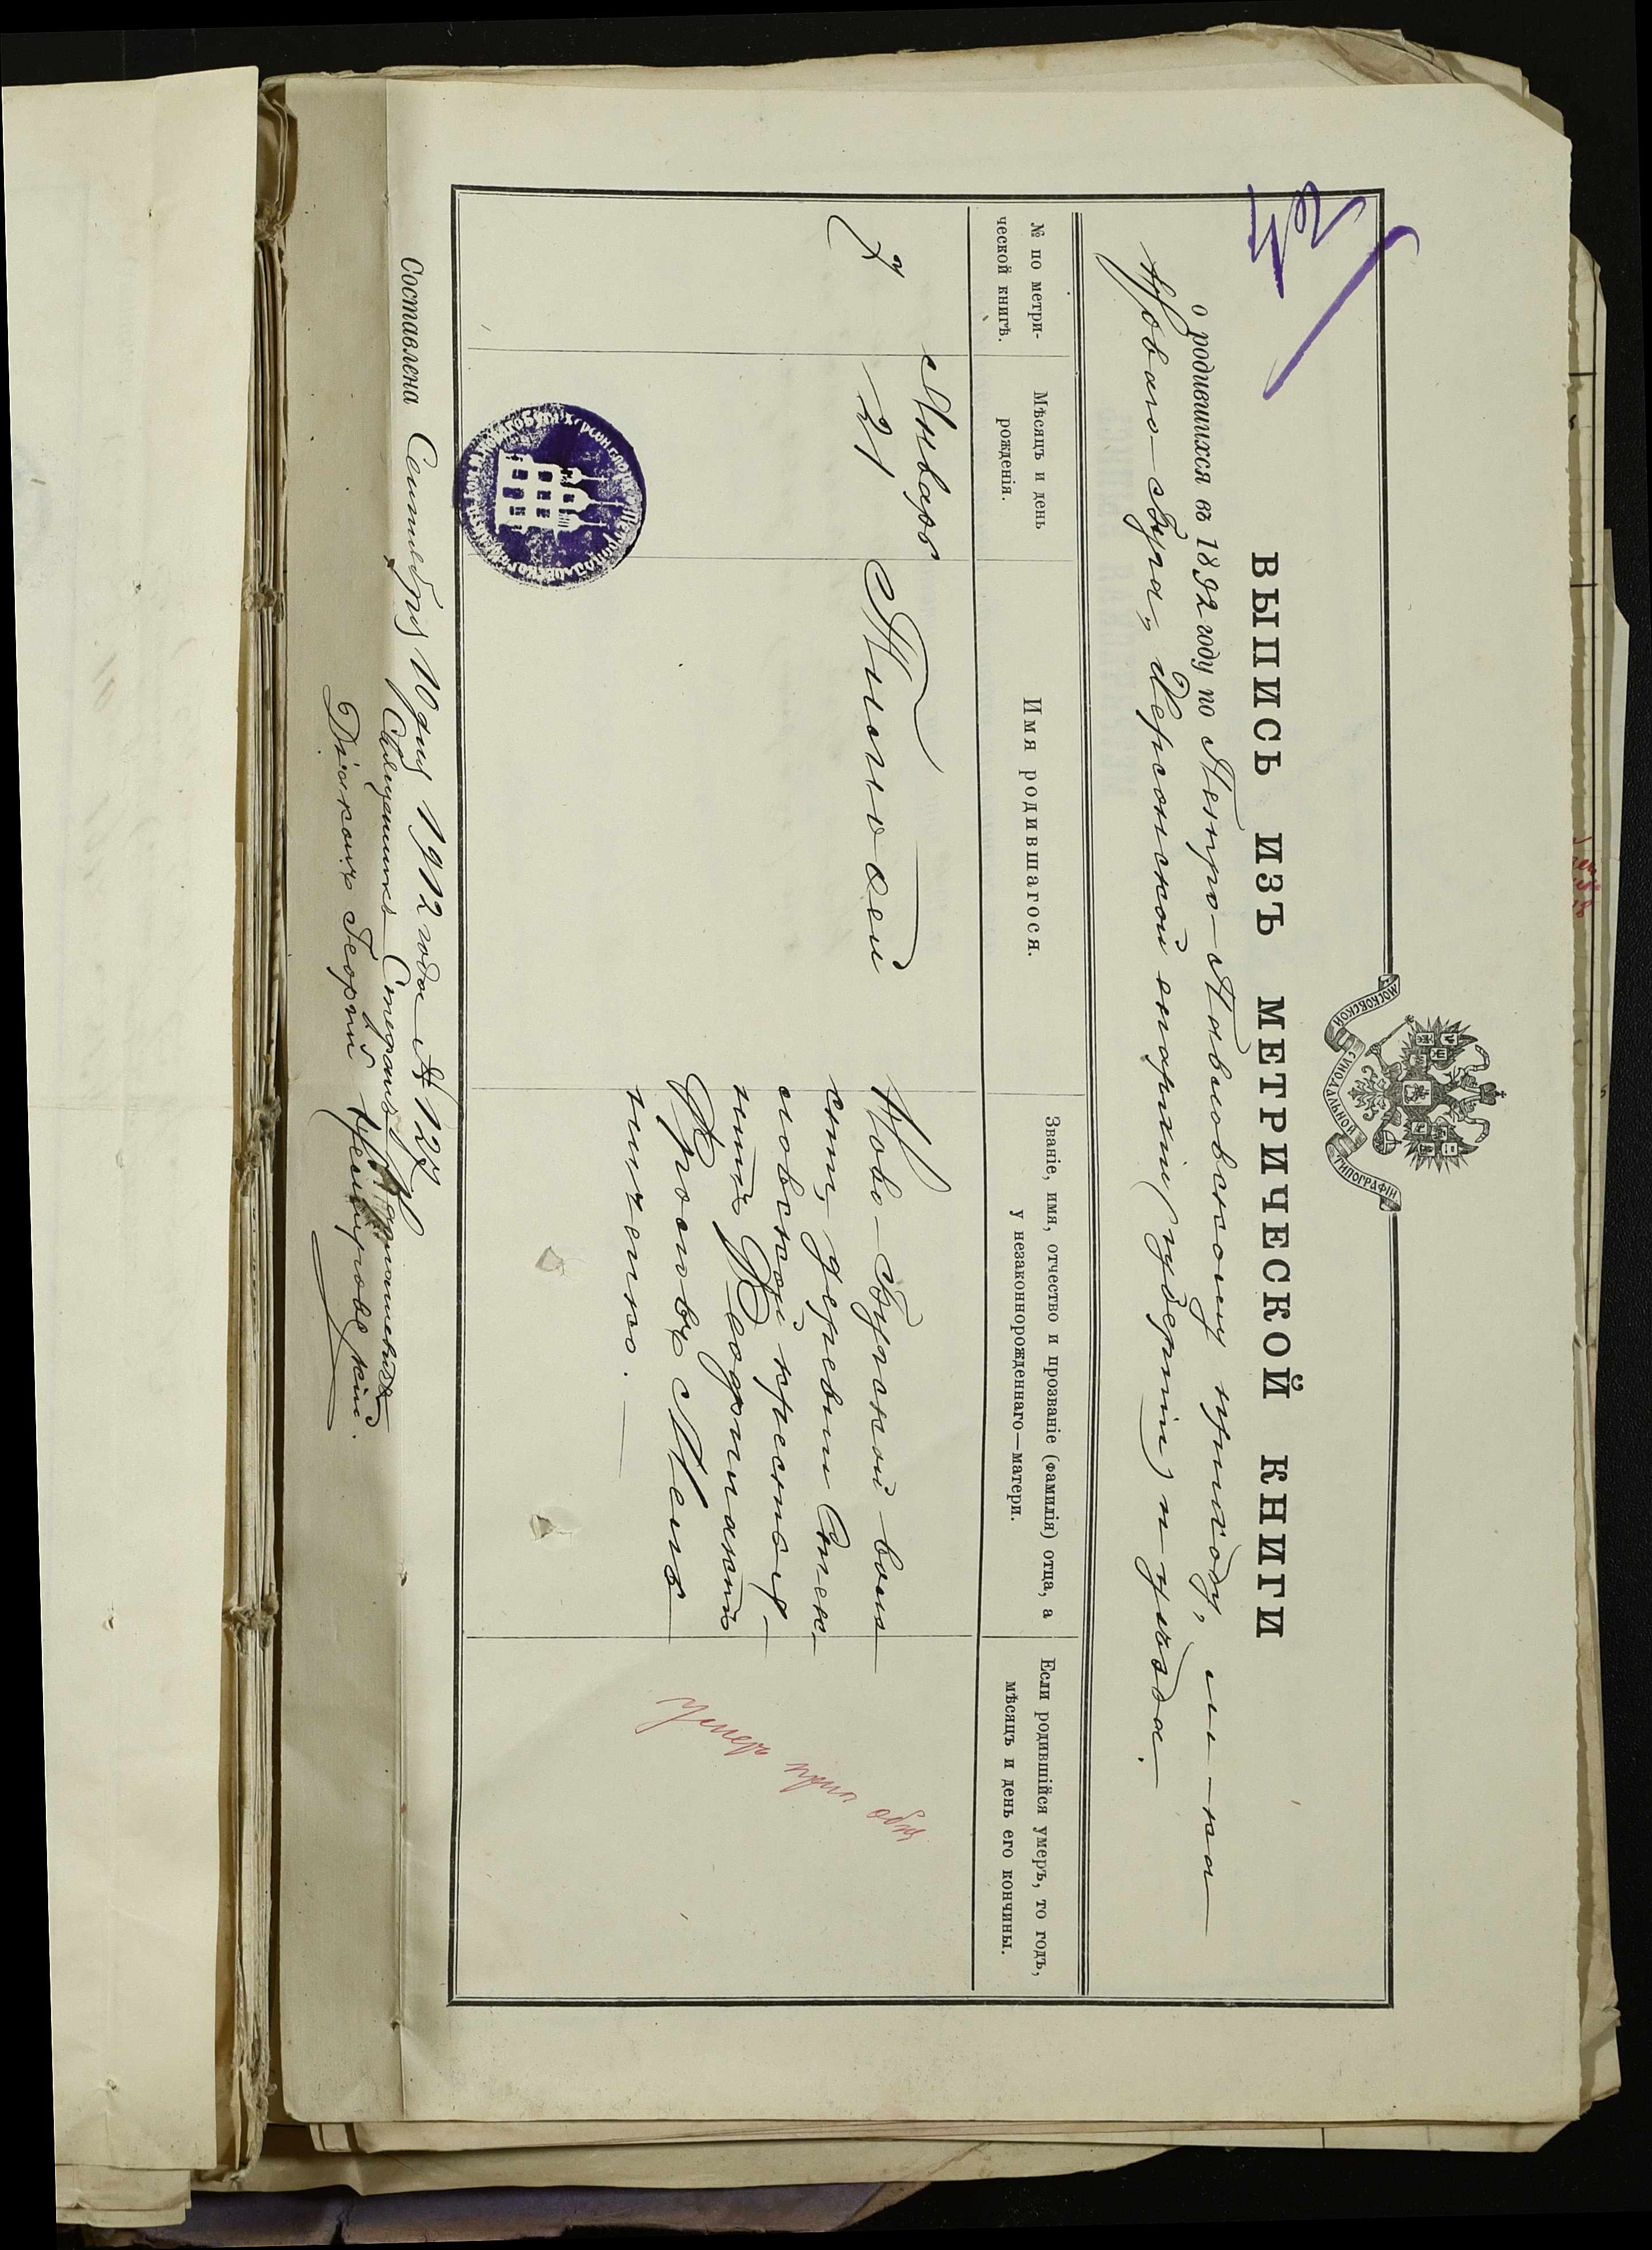 МОСКОВСКОЙ СИНОДАЛЬНОЙ ТИПОГРАФІИ
ВЫПИСЬ ИЗЪ МЕТРИЧЕСКОЙ КНИГИ
о родившихся въ 1892 году по Петро-Павловскому приходу, м-ка
Новаго-Буга, Херсонской епархіи (губерніи) и уѣзда.
№ по метри-
ческой книгѣ.
Мѣсяцъ и день
рожденія.
Имя родившагося.
Званіе, имя, отчество и прозваніе (фамилія) отца, а
у незаконнорожденнаго—матери.
Если родившійся умеръ, то годъ,
мѣсяцъ и день его кончины.
Январь
21
Тимофей
Ново-Бугской воло
сти, деревни
крестья
нинъ
Фроловъ
ниченко.
Умеръ
Составлена Сентября 10 дня 1912 года № 127
Священникъ Стефанъ
Діаконъ Георгій